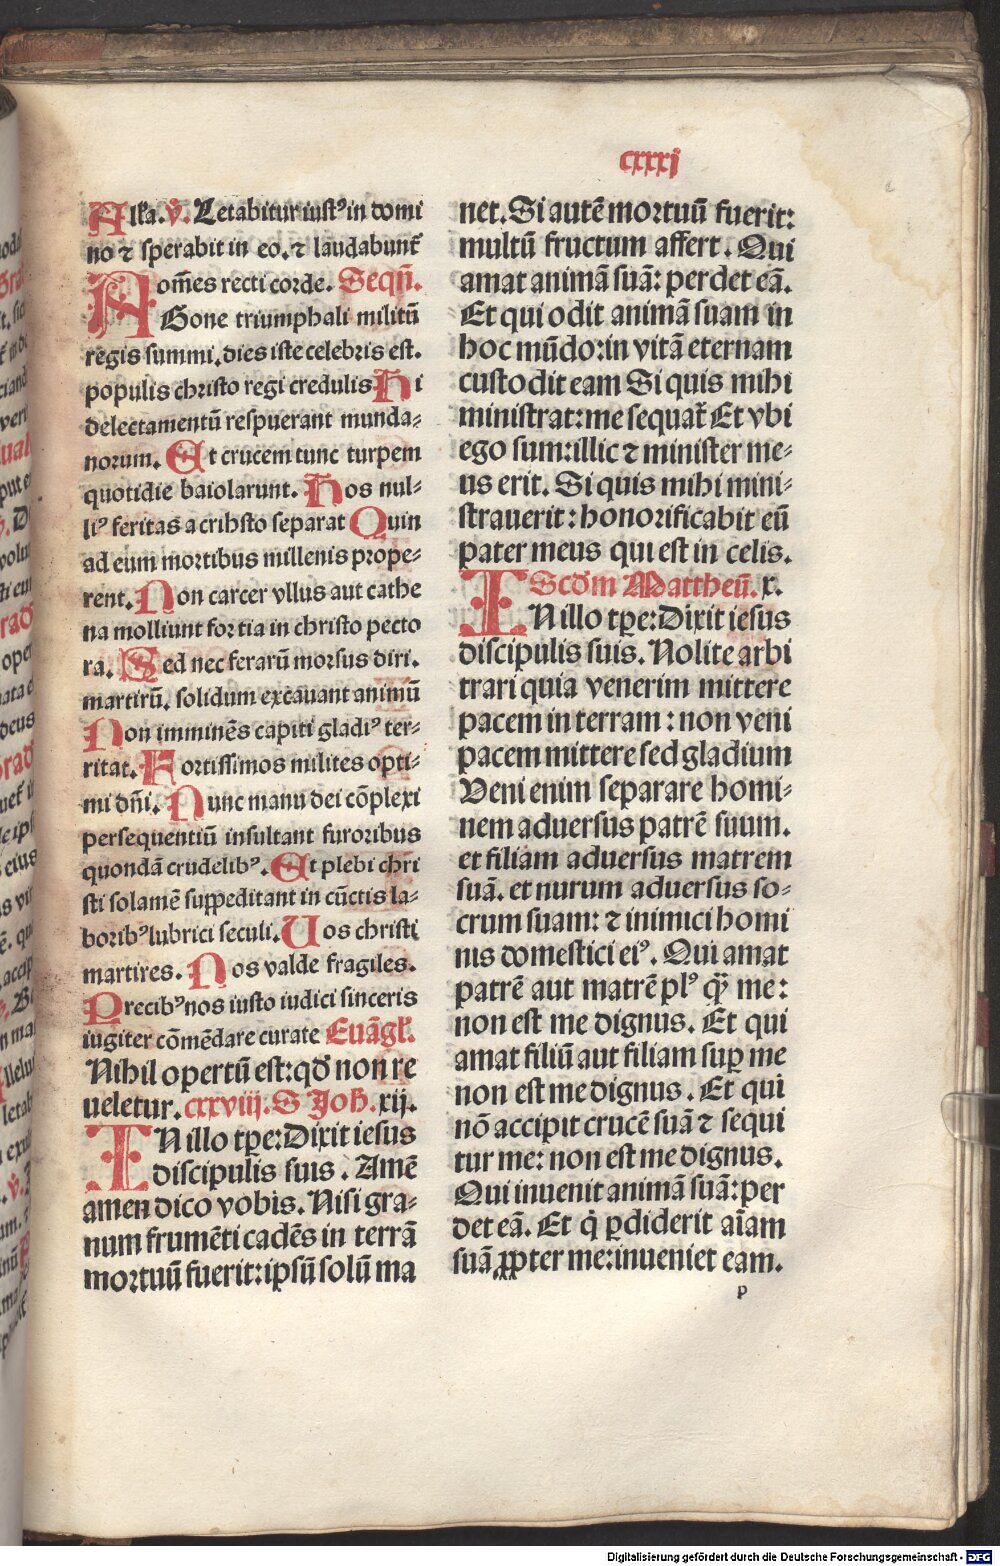 cxxxj
Alľa. v̉. Letabitur iustꝰ in domi
no ⁊ sperabit in eo. ⁊ laudabunt᷑
om̄es recti corde. Seqū.
AGone triumphali militū
regis summi. dies iste celebris est.
populis christo regi credulis Hi
delectamentū respuerant munda⸗
norum. Et crucem tunc turpem
quotidie baiolarunt. Hos nul⸗
liꝰ feritas a crihsto separat Quin
ad eum mortibus millenis prope⸗
rent. Non carcer vllus aut cathe
na molliunt fortia in christo pecto
ra. Sed nec ferarū morsus diri.
martirū. solidum excauant animū
Non imminēs capiti gladiꝰ ter⸗
ritat. Fortissimos milites opti⸗
mi dn̄i. Nunc manu dei cōplexi
persequentiū insultant furoribus
quondā crudelibꝰ. Et plebi chri
sti solamē suppeditant in cūctis la⸗
boribꝰ lubrici seculi. Uos christi
martires. Nos valde fragiles.
Precibꝰ nos iusto iudici sinceris
iugiter cōmēdare curate Euāgľ.
Nihil opertū est: qđ non re
ueletur. cxxviij. S Joħ. xij.
IN illo tꝑe: Dixit iesus
discipulis suis. Amē
amen dico vobis. Nisi gra⸗
num frumēti cadēs in terrā
mortuū fuerit: ipsū solū ma
net. Si autē mortuū fuerit:
multū fructum affert. Qui
amat animā suā: perdet eā.
Et qui odit animā suam in
hoc mūdo: in vitā eternam
custodit eam Si quis mihi
ministrat: me sequat᷑ Et vbi
ego sum: illic ⁊ minister me⸗
us erit. Si quis mihi mini⸗
strauerit: honorificabit eū
pater meus qui est in celis.
Scđm Mattheū. x.
IN illo tꝑe: Dixit iesus
discipulis suis. Nolite arbi
trari quia venerim mittere
pacem in terram: non veni
pacem mittere sed gladium
Veni enim separare homi⸗
nem aduersus patrē suum.
et filiam aduersus matrem
suā. et nurum aduersus so⸗
crum suam: ⁊ inimici homi
nis domestici eiꝰ. Qui amat
patrē aut matrē plꝰ qᷓ me:
non est me dignus. Et qui
amat filiū aut filiam suꝑ me
non est me dignus. Et qui
nō accipit crucē suā ⁊ sequi
tur me: non est me dignus.
Qui inuenit animā suā: per
det eā. Et q̇ ꝑdiderit aīam
suā ꝓpter me: inueniet eam.
p
Digitalisierung gefördert durch die Deutsche Forschungsgemeinschaft - DFG